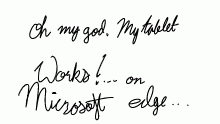 Oh my god. My tablet
Works!... on
Microsoft edge...